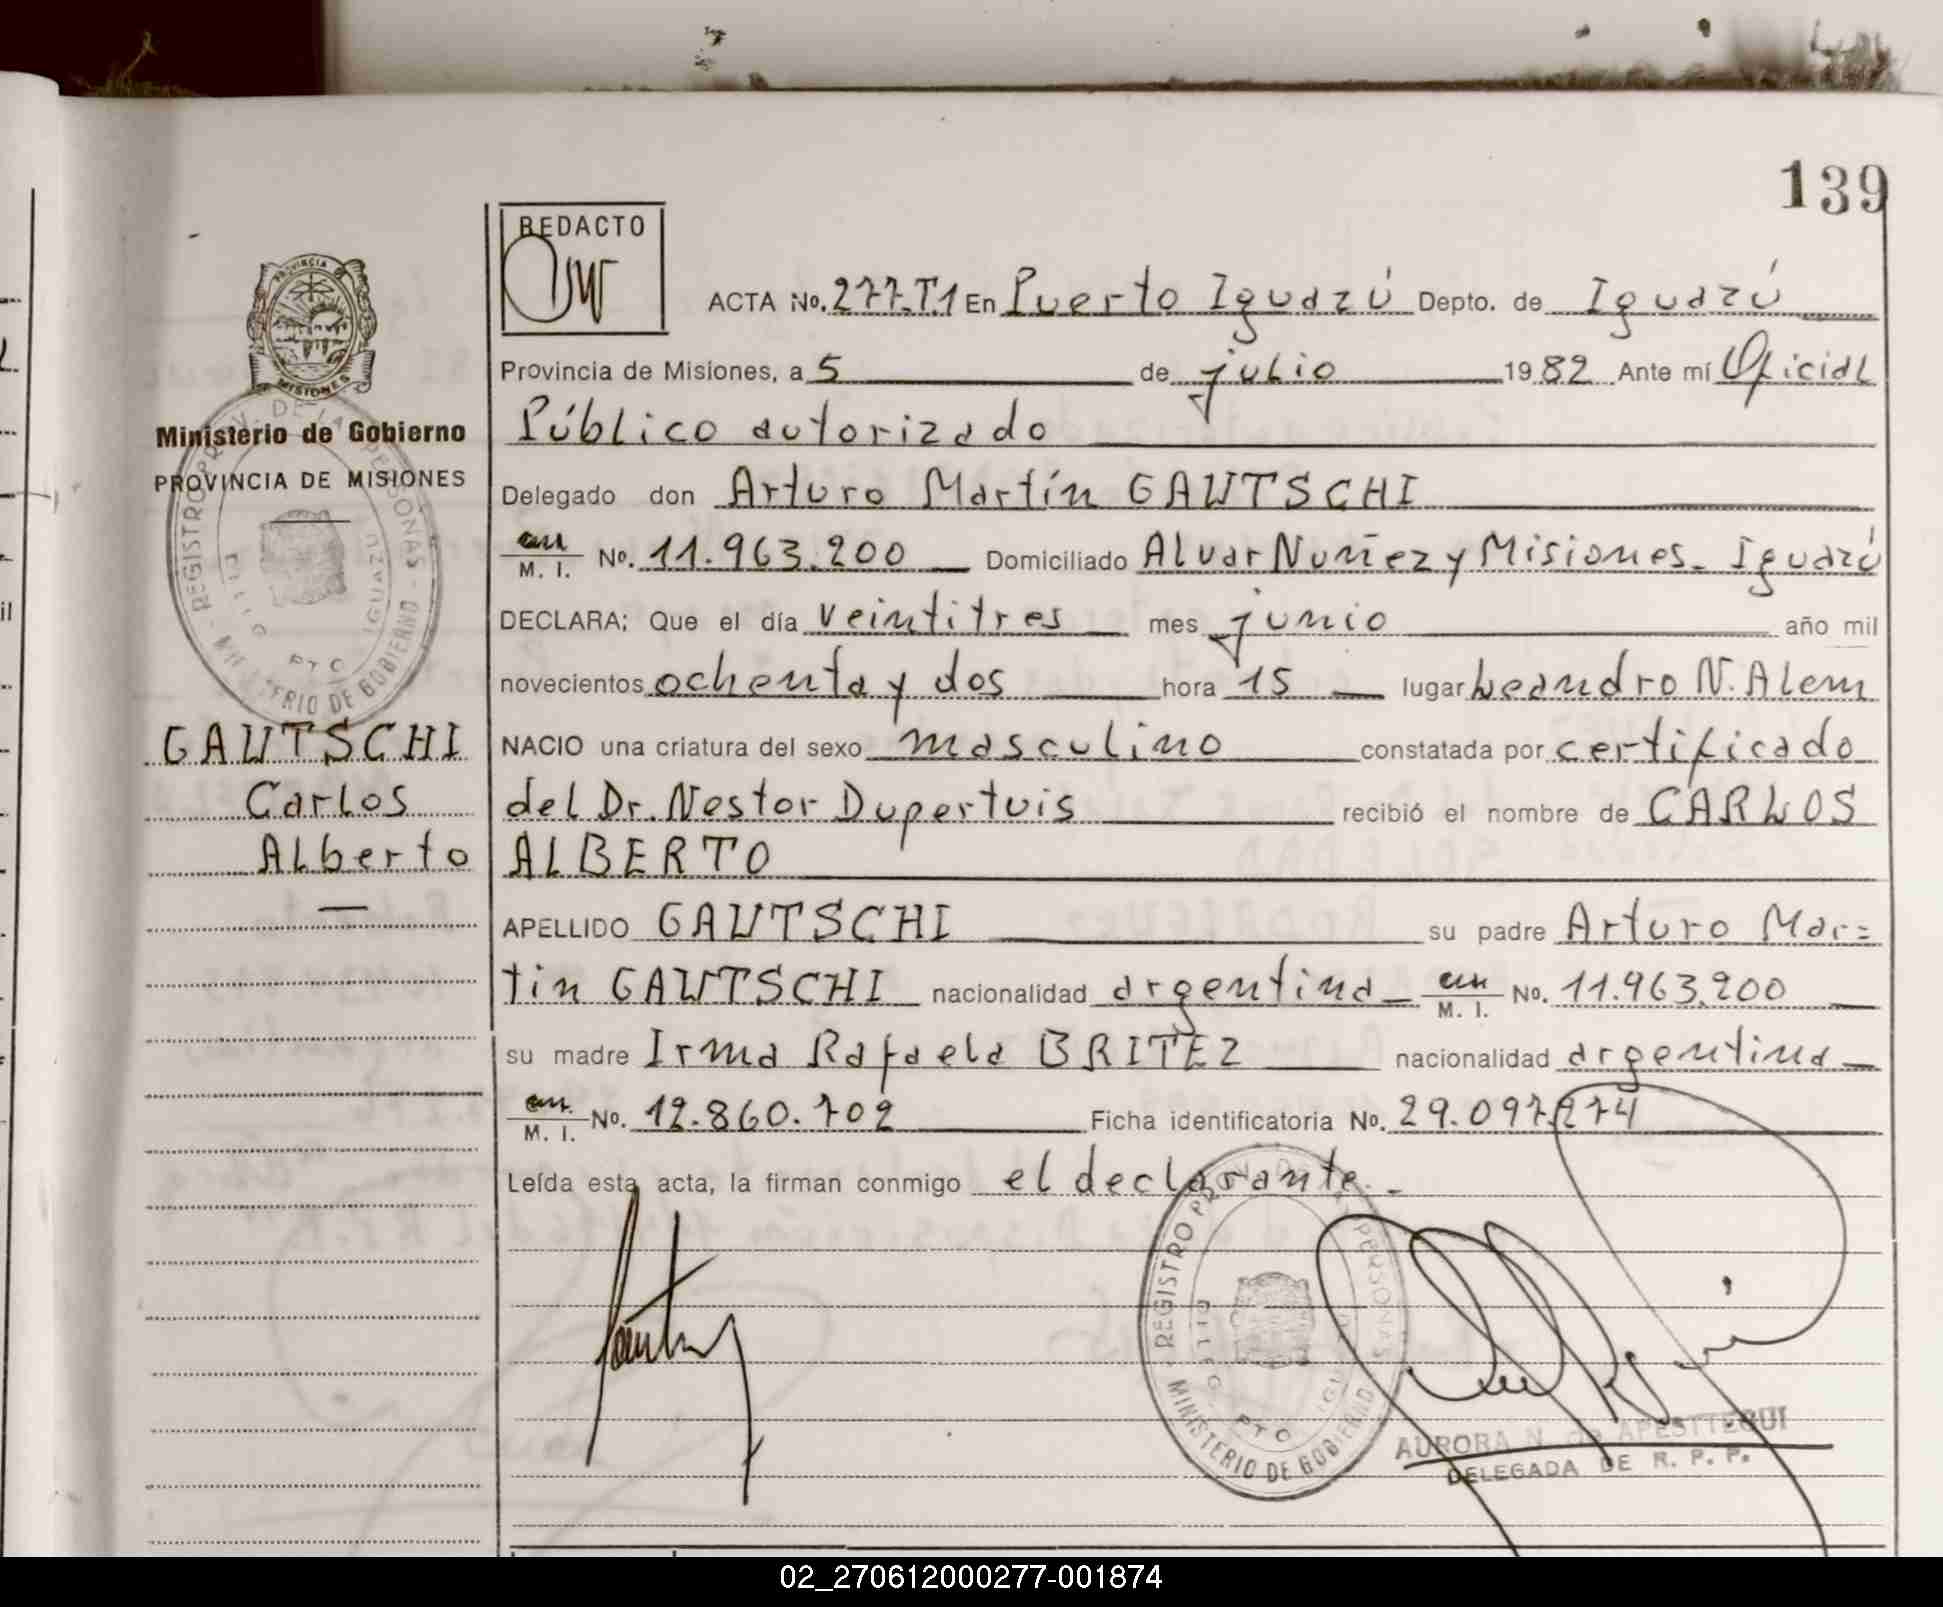 139
REDACTO
ACTA No. 277-T.1 En Puerto Iguazú Depto. de Iguazú
Provincia de Misiones, a 5 de julio 1982 Ante mí Oficial
Público autorizado
Delegado don Arturo Martín GAUTSCHI
M. I. No. 11.963.200 Domiciliado Alvar Nuñez y Misiones. Iguazú
DECLARA; Que el día veintitres mes junio año mil
novecientos ochenta y dos hora 15 lugar Leandro N. Alem
NACIO una criatura del sexo masculino constatada por certificado
del Dr. Nestor Dupertuis recibió el nombre de CARLOS
ALBERTO
APELLIDO GAUTSCHI su padre Arturo Mar=
tin GAUTSCHI nacionalidad argentina M. I. No. 11.963.200
su madre Irma Rafaela BRITEZ nacionalidad argentina
M. I. No. 12.860.702 Ficha identificatoria No. 29.097.274
Leída esta acta, la firman conmigo el declarante.-
PROVINCIA DE
MISIONES
Ministerio de Gobierno
PROVINCIA DE MISIONES
REGISTRO PROV. DE LAS PERSONAS - MINISTERIO DE GOBIERNO
PTO IGUAZU
GAUTSCHI
Carlos
Alberto
REGISTRO PROV. DE LAS PERSONAS
MINISTERIO DE GOBIERNO
PTO IGUAZU
AURORA N. de APESTTEGUI
DELEGADA DE R. P. P.
02_270612000277-001874